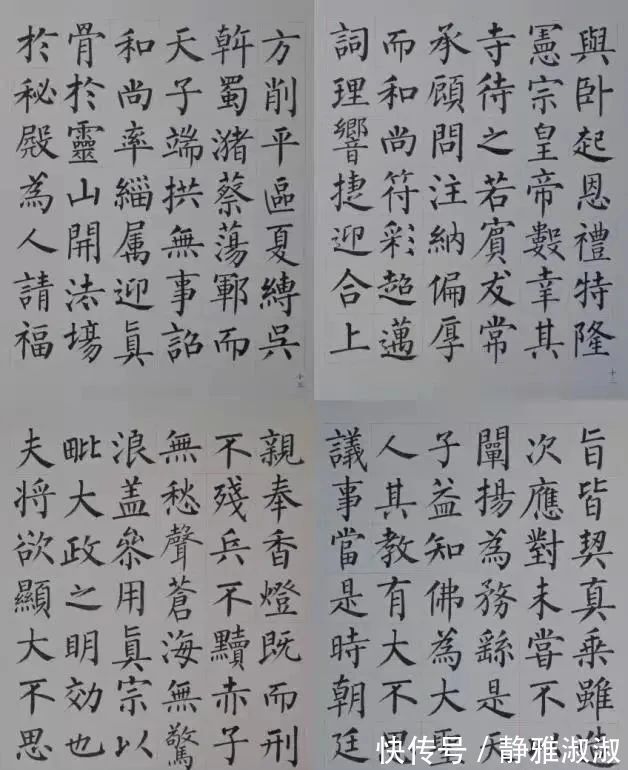 與卧起恩禮特隆
憲宗皇帝數幸其
寺待之若賓友常
承顧問注納偏厚
而和尚符彩超邁
詞理響捷迎合上
十一
旨皆契真乘雖造
次應對未嘗不
闡揚為務繇是天
子益知佛為大聖
人其教有大不思
議事當是時朝廷
方削平區夏縛吳
斡蜀瀦蔡蕩鄆而
天子端拱無事詔
和尚率緇属迎眞
骨於靈山開法場
於秘殿為人請福
十三
親奉香燈既而刑
不殘兵不黷赤子
無愁聲蒼海無驚
浪盖叅用眞宗以
毗大政之明効也
夫將欲顯大不思
快传号/静雅淑淑